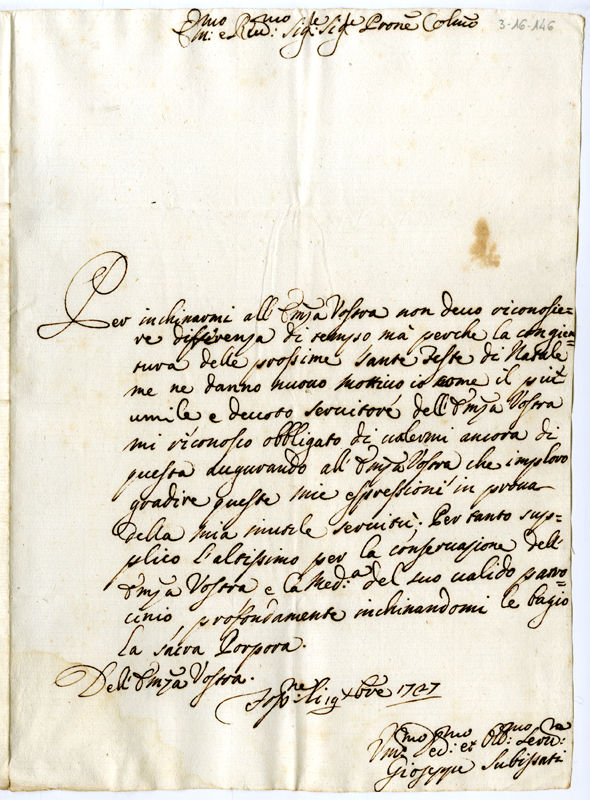 E:mo e Rev:mo Sig:re Sig:re Prone Colmo
3-16-146
Per inchinarmi all'Emza Vostra non devo riconosce=
re differenza di tempo mà perche la congiun=
tura delle prossime Sante Feste di Natale
me ne danno nuovo mottivo io come il più
umile e devoto servitore dell'Emza Vostra
mi riconosco obbligato di valermi ancora di
questa augurando all'Emza Vostra che imploro
gradire queste mie espressioni in prova
della mia inutile servitù. Per tanto sup=
plico l'altissimo per la conservazione dell'
Emza Vostra e la Med:a del suo valido patro=
cinio profondamente inchinandomi le bagio
la Sacra Porpora.
Dell'Emza Vostra.
li 19 Xbre 1727
Um:mo Dev:mo et Obb:mo Serv:re
Gioseppe Subissati